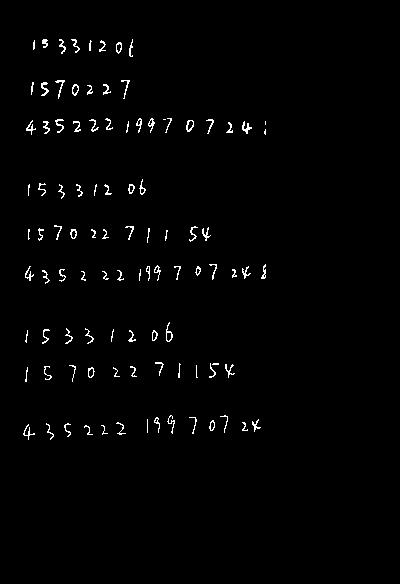 15331206
1570227
435222199707241
15331206
15702271154
435222199707248
15331206
15702271154
43522219970724